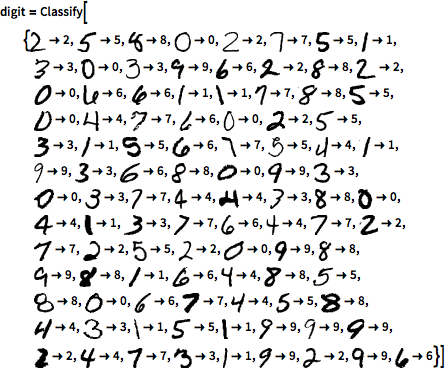 digit = Classify[
{2→2, 5→5, 8→8, 0→0, 2→2, 7→7, 5→5, 1→1,
3→3, 0→0, 3→3, 9→9, 6→6, 2→2, 8→8, 2→2,
0→0, 6→6, 6→6, 1→1, 1→1, 7→7, 8→8, 5→5,
0→0, 4→4, 7→7, 6→6, 0→0, 2→2, 5→5,
3→3, 1→1, 5→5, 6→6, 7→7, 5→5, 4→4, 1→1,
9→9, 3→3, 6→6, 8→8, 0→0, 9→9, 3→3,
0→0, 3→3, 7→7, 4→4, 4→4, 3→3, 8→8, 0→0,
4→4, 1→1, 3→3, 7→7, 6→6, 4→4, 7→7, 2→2,
7→7, 2→2, 5→5, 2→2, 0→0, 9→9, 8→8,
9→9, 8→8, 1→1, 6→6, 4→4, 8→8, 5→5,
8→8, 0→0, 6→6, 7→7, 4→4, 5→5, 8→8,
4→4, 3→3, 1→1, 5→5, 1→1, 9→9, 9→9, 9→9,
2→2, 4→4, 7→7, 3→3, 1→1, 9→9, 2→2, 9→9, 6→6}]